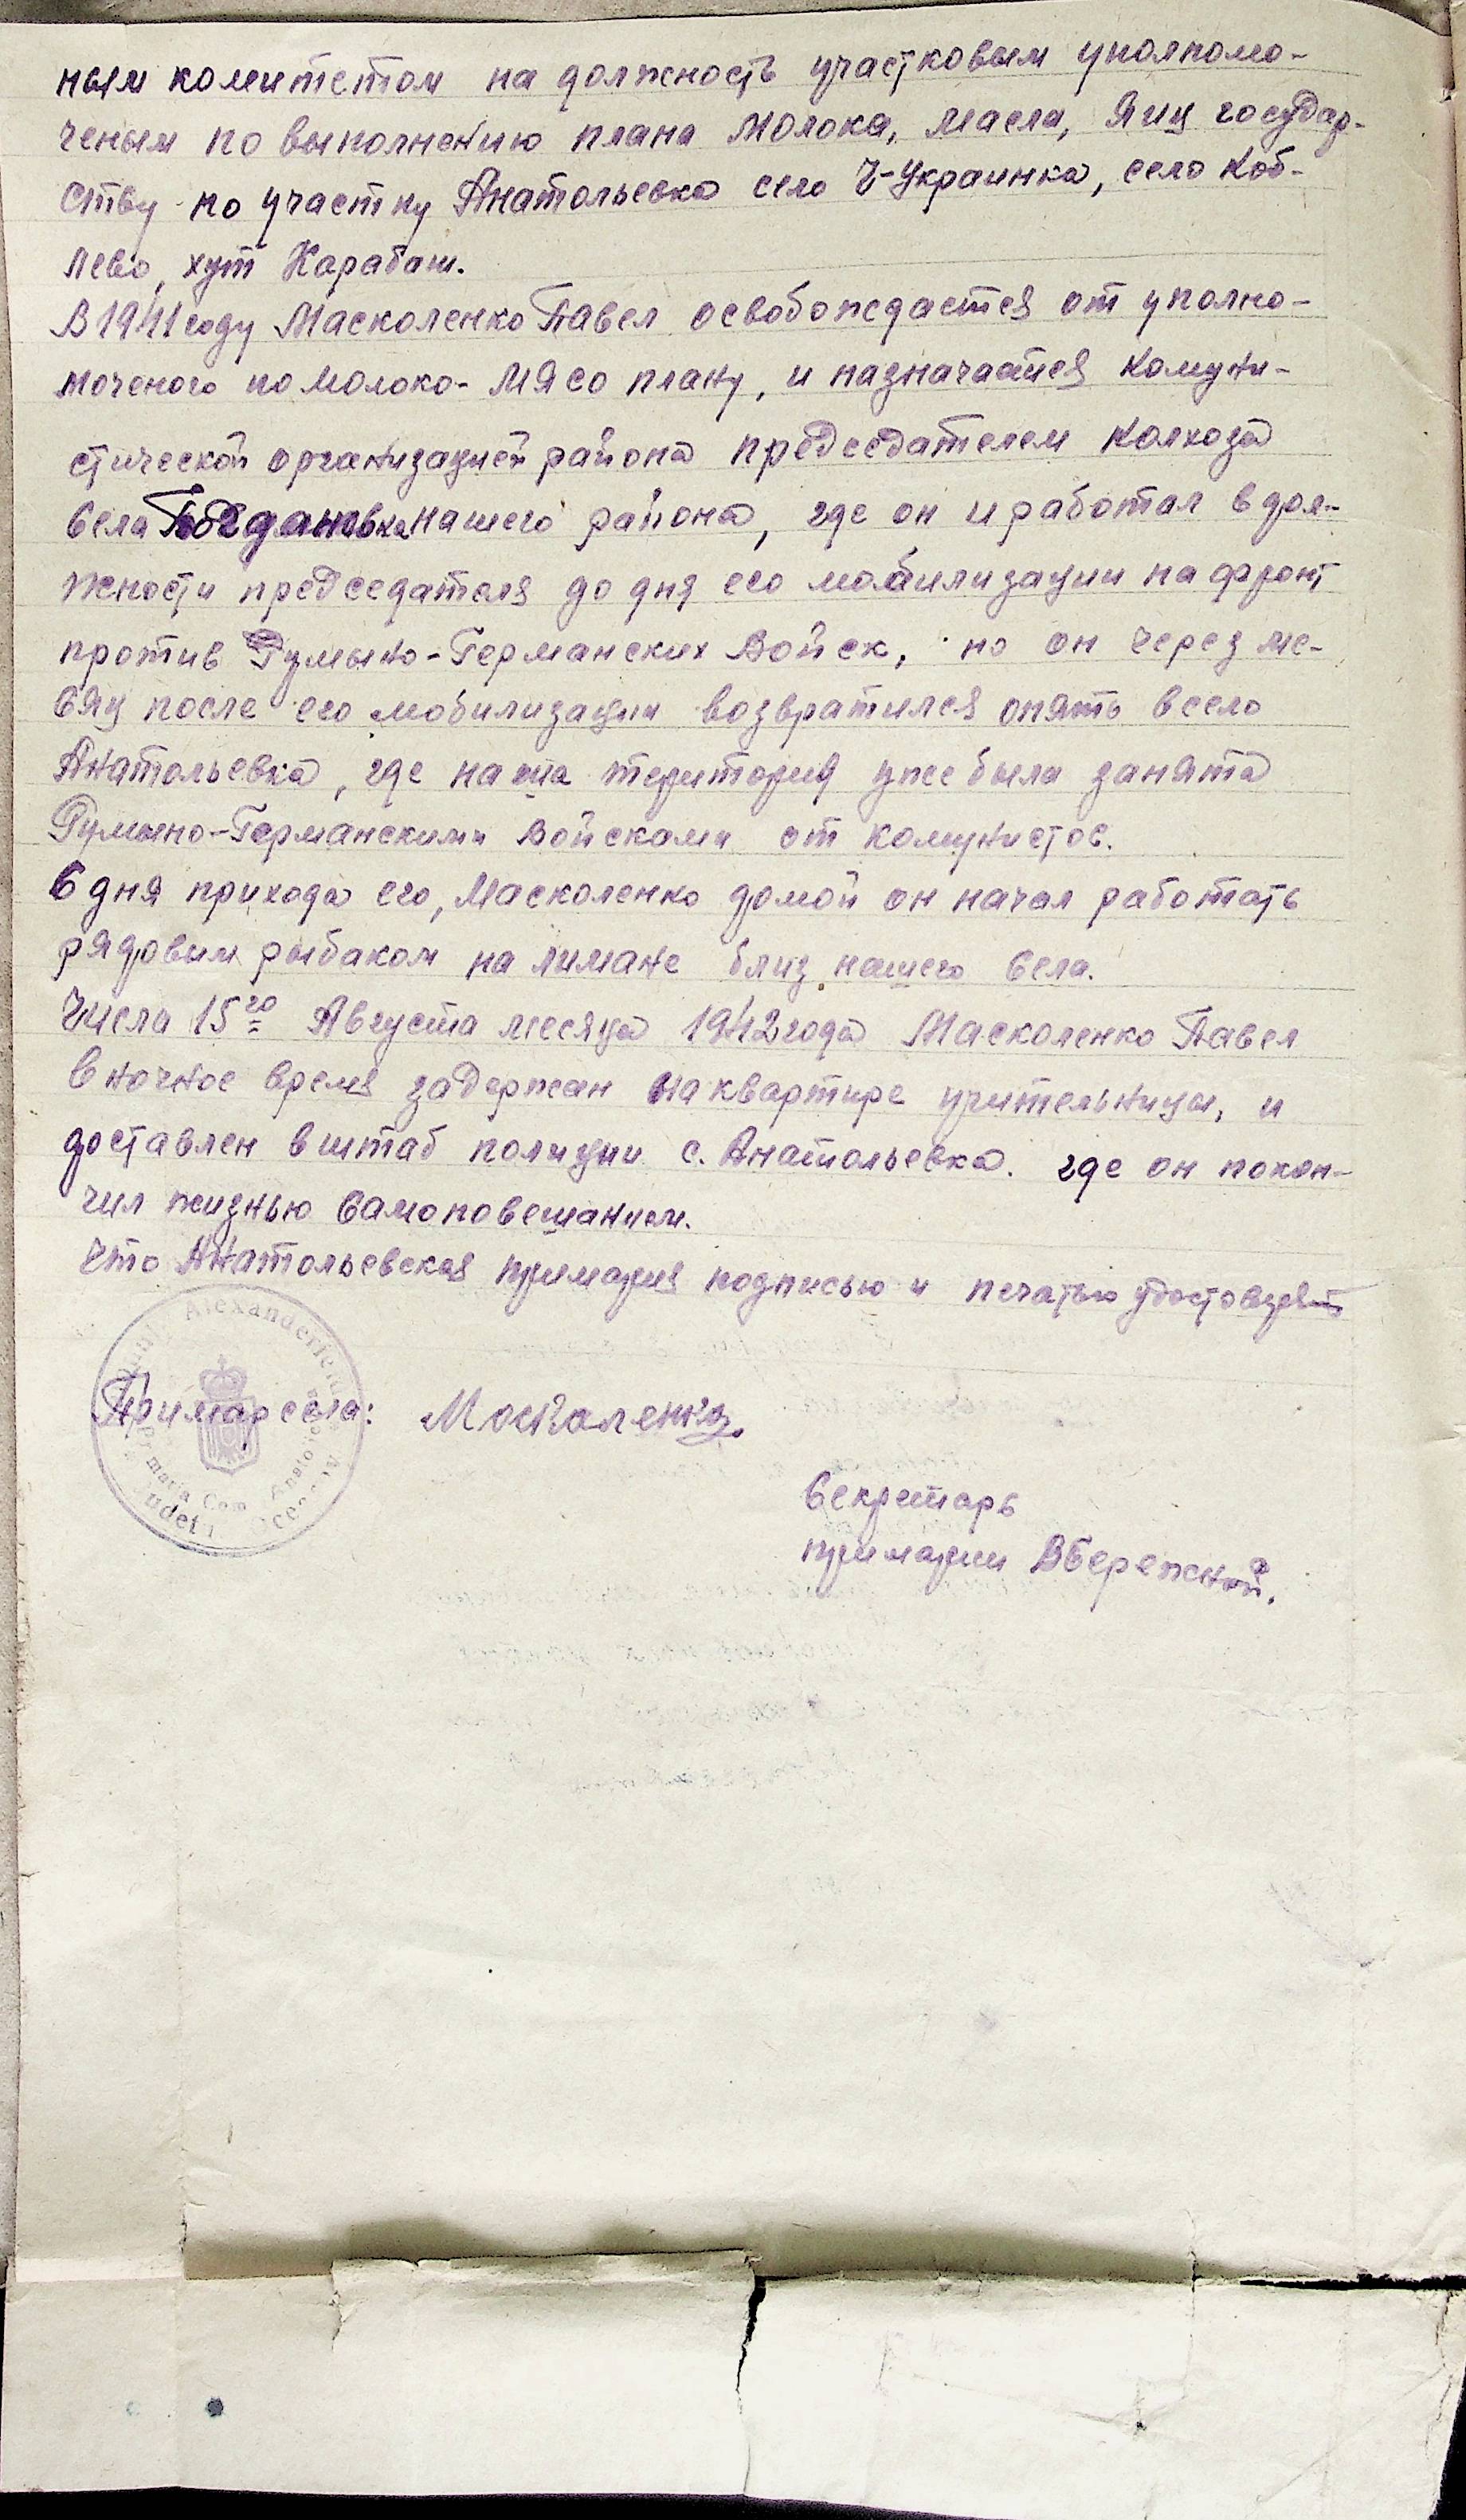 ным комитетом на должность участковым уполномо-
ченым по выполнению плана молока, масла, яиц государ-
ству по участку Анатольевка село Ч-Украинка, село Коб-
лево, хут Карабаш.
В 1941 году Масколенко Павел освобождается от уполно-
моченого по молоко-мясо плану, и назначается комуни-
стической организацией района председателем колхоза
села Богдановка нашего района, где он и работал в дол-
жности председателя до дня его мобилизации на фронт
против Румыно-Германских Войск, но он через ме-
сяц после его мобилизации возвратился опять в село
Анатольевка, где наша територия уже была занята
Румыно-Германскими Войсками от комунистов.
С дня прихода его, Масколенко домой он начал работать
рядовым рыбаком на лимане близ нашего села.
Числа 15го Августа месяца 1942 года Масколенко Павел
в ночное время задержан на квартире учительницы, и
доставлен в штаб полиции с. Анатольевка. где он покон-
чил жизнью самоповешанием.
Что Анатольевская примария подписью и печатью удостоверяет
Alexanderfeld
Примар села: Москаленко
Com.
Секретарь
примарии ВБережной.